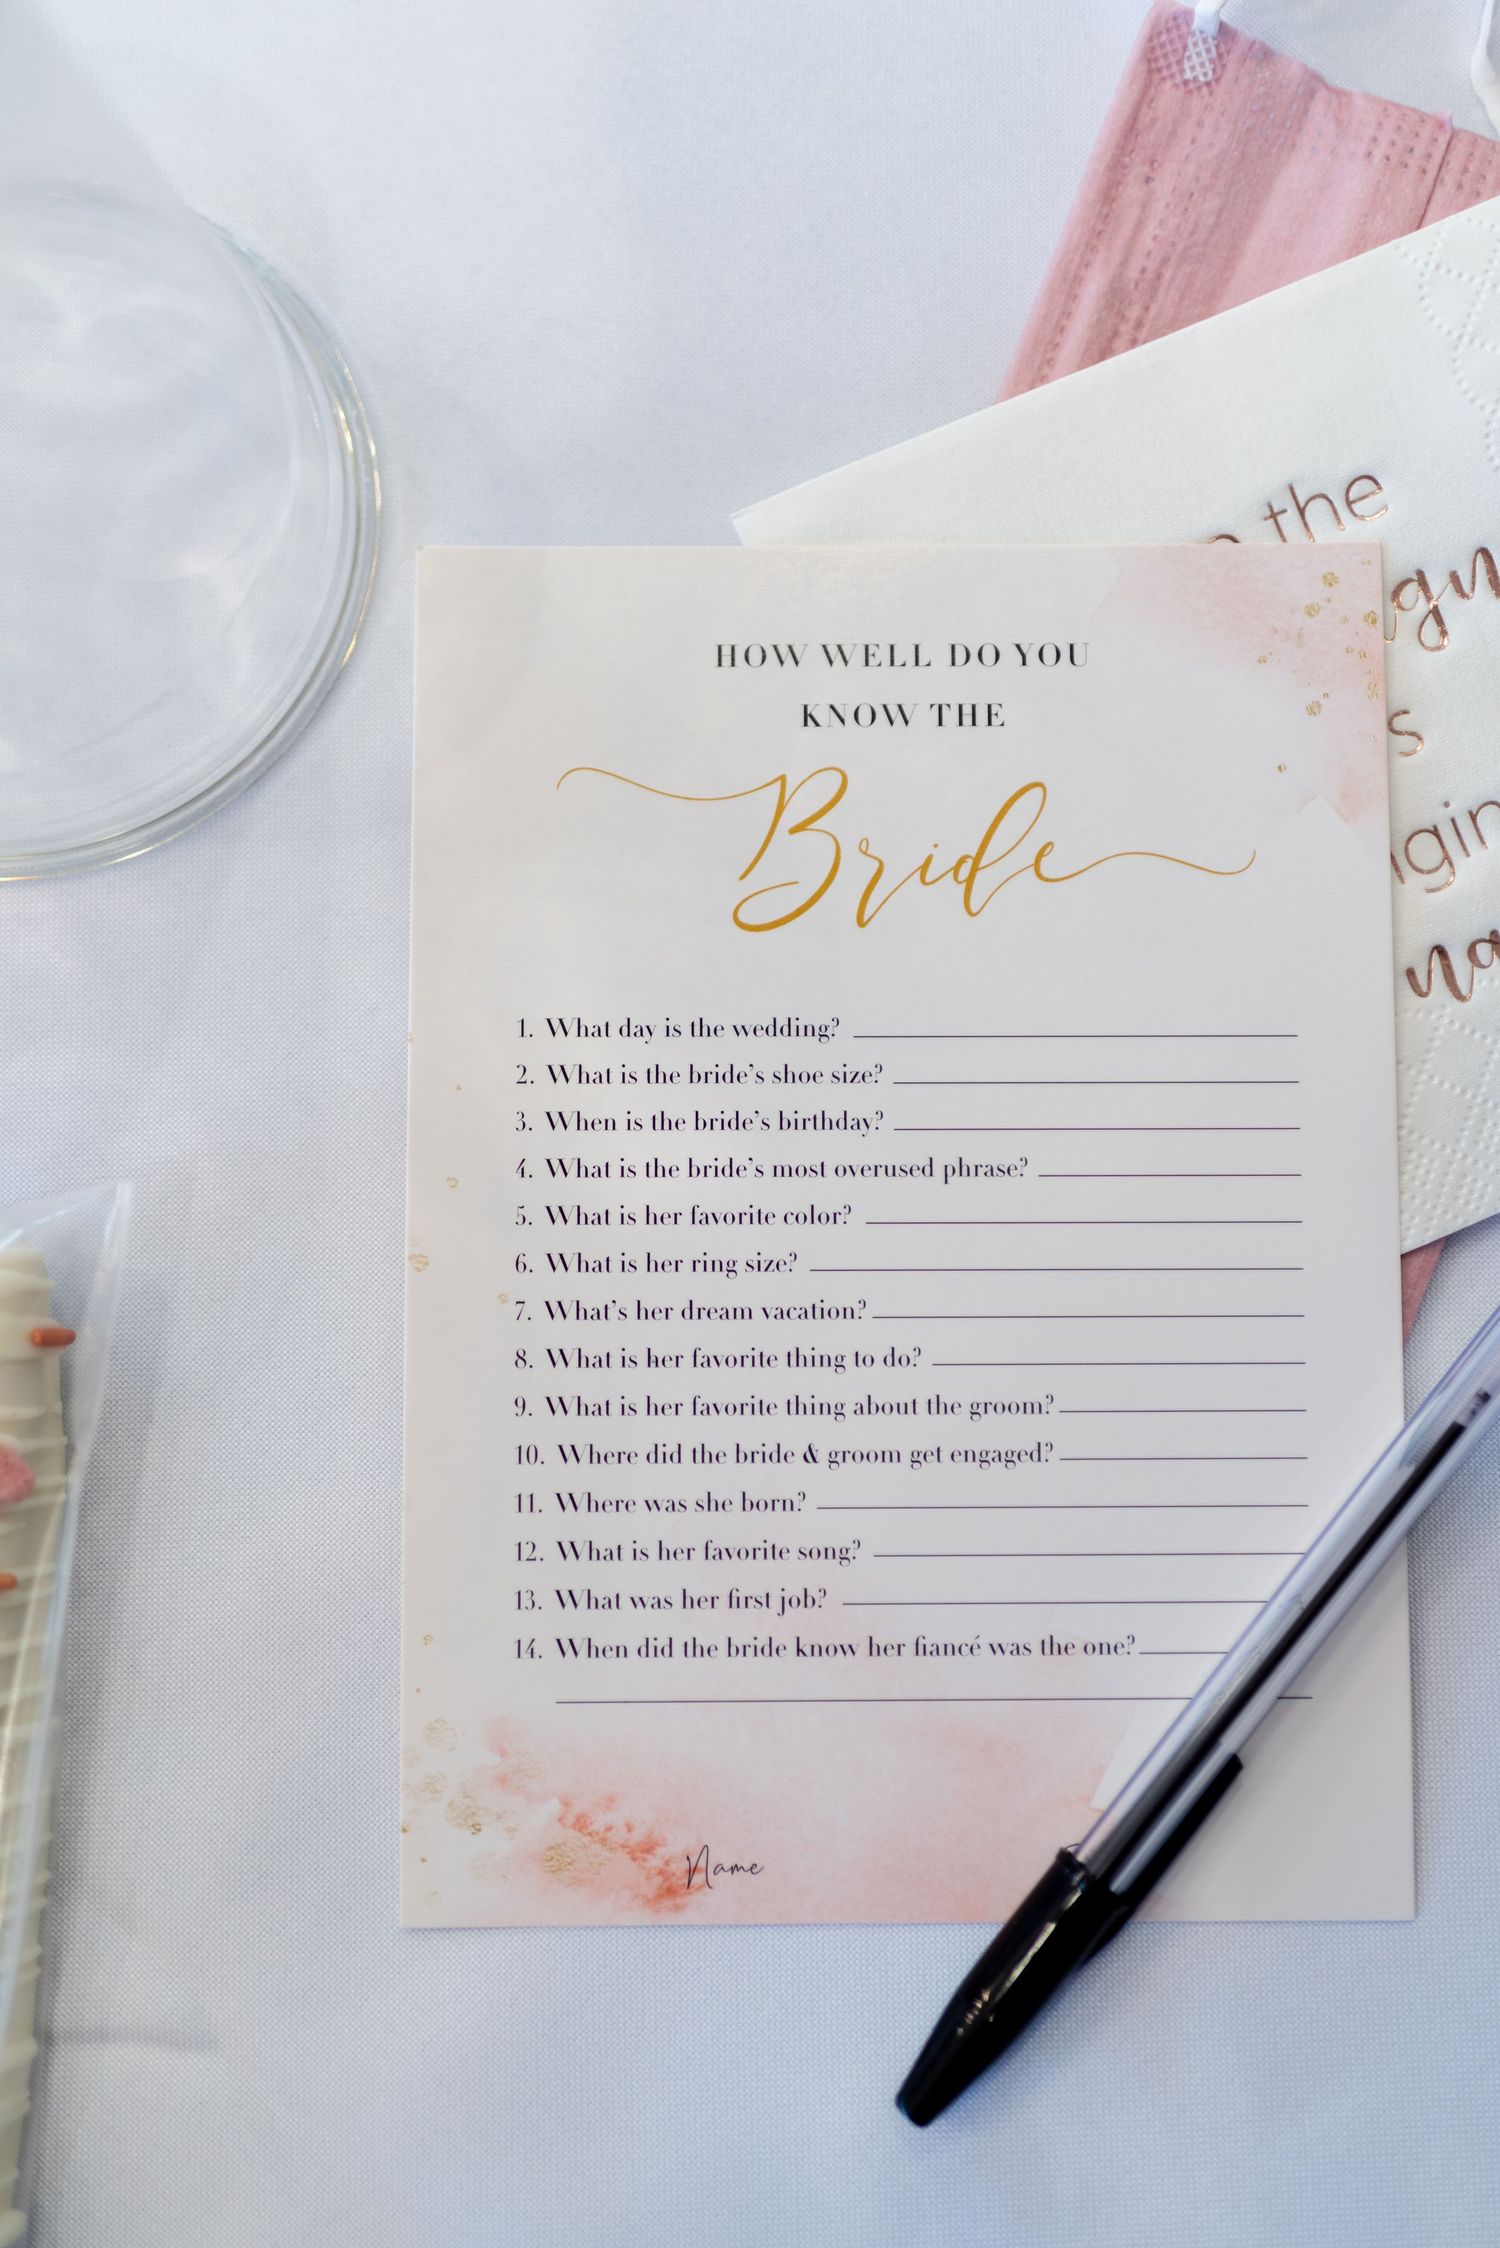 the
HOW WELL DO YOU
KNOW THE
Bride
1. What day is the wedding?
2. What is the bride's shoe size?
3. When is the bride's birthday?
4. What is the bride's most overused phrase?
5. What is her favorite color?
6. What is her ring size?
7. What's her dream vacation?
8. What is her favorite thing to do?
9. What is her favorite thing about the groom?
10. Where did the bride & groom get engaged?
11. Where was she born?
12. What is her favorite song?
13. What was her first job?
14. When did the bride know her fiancé was the one?
Name